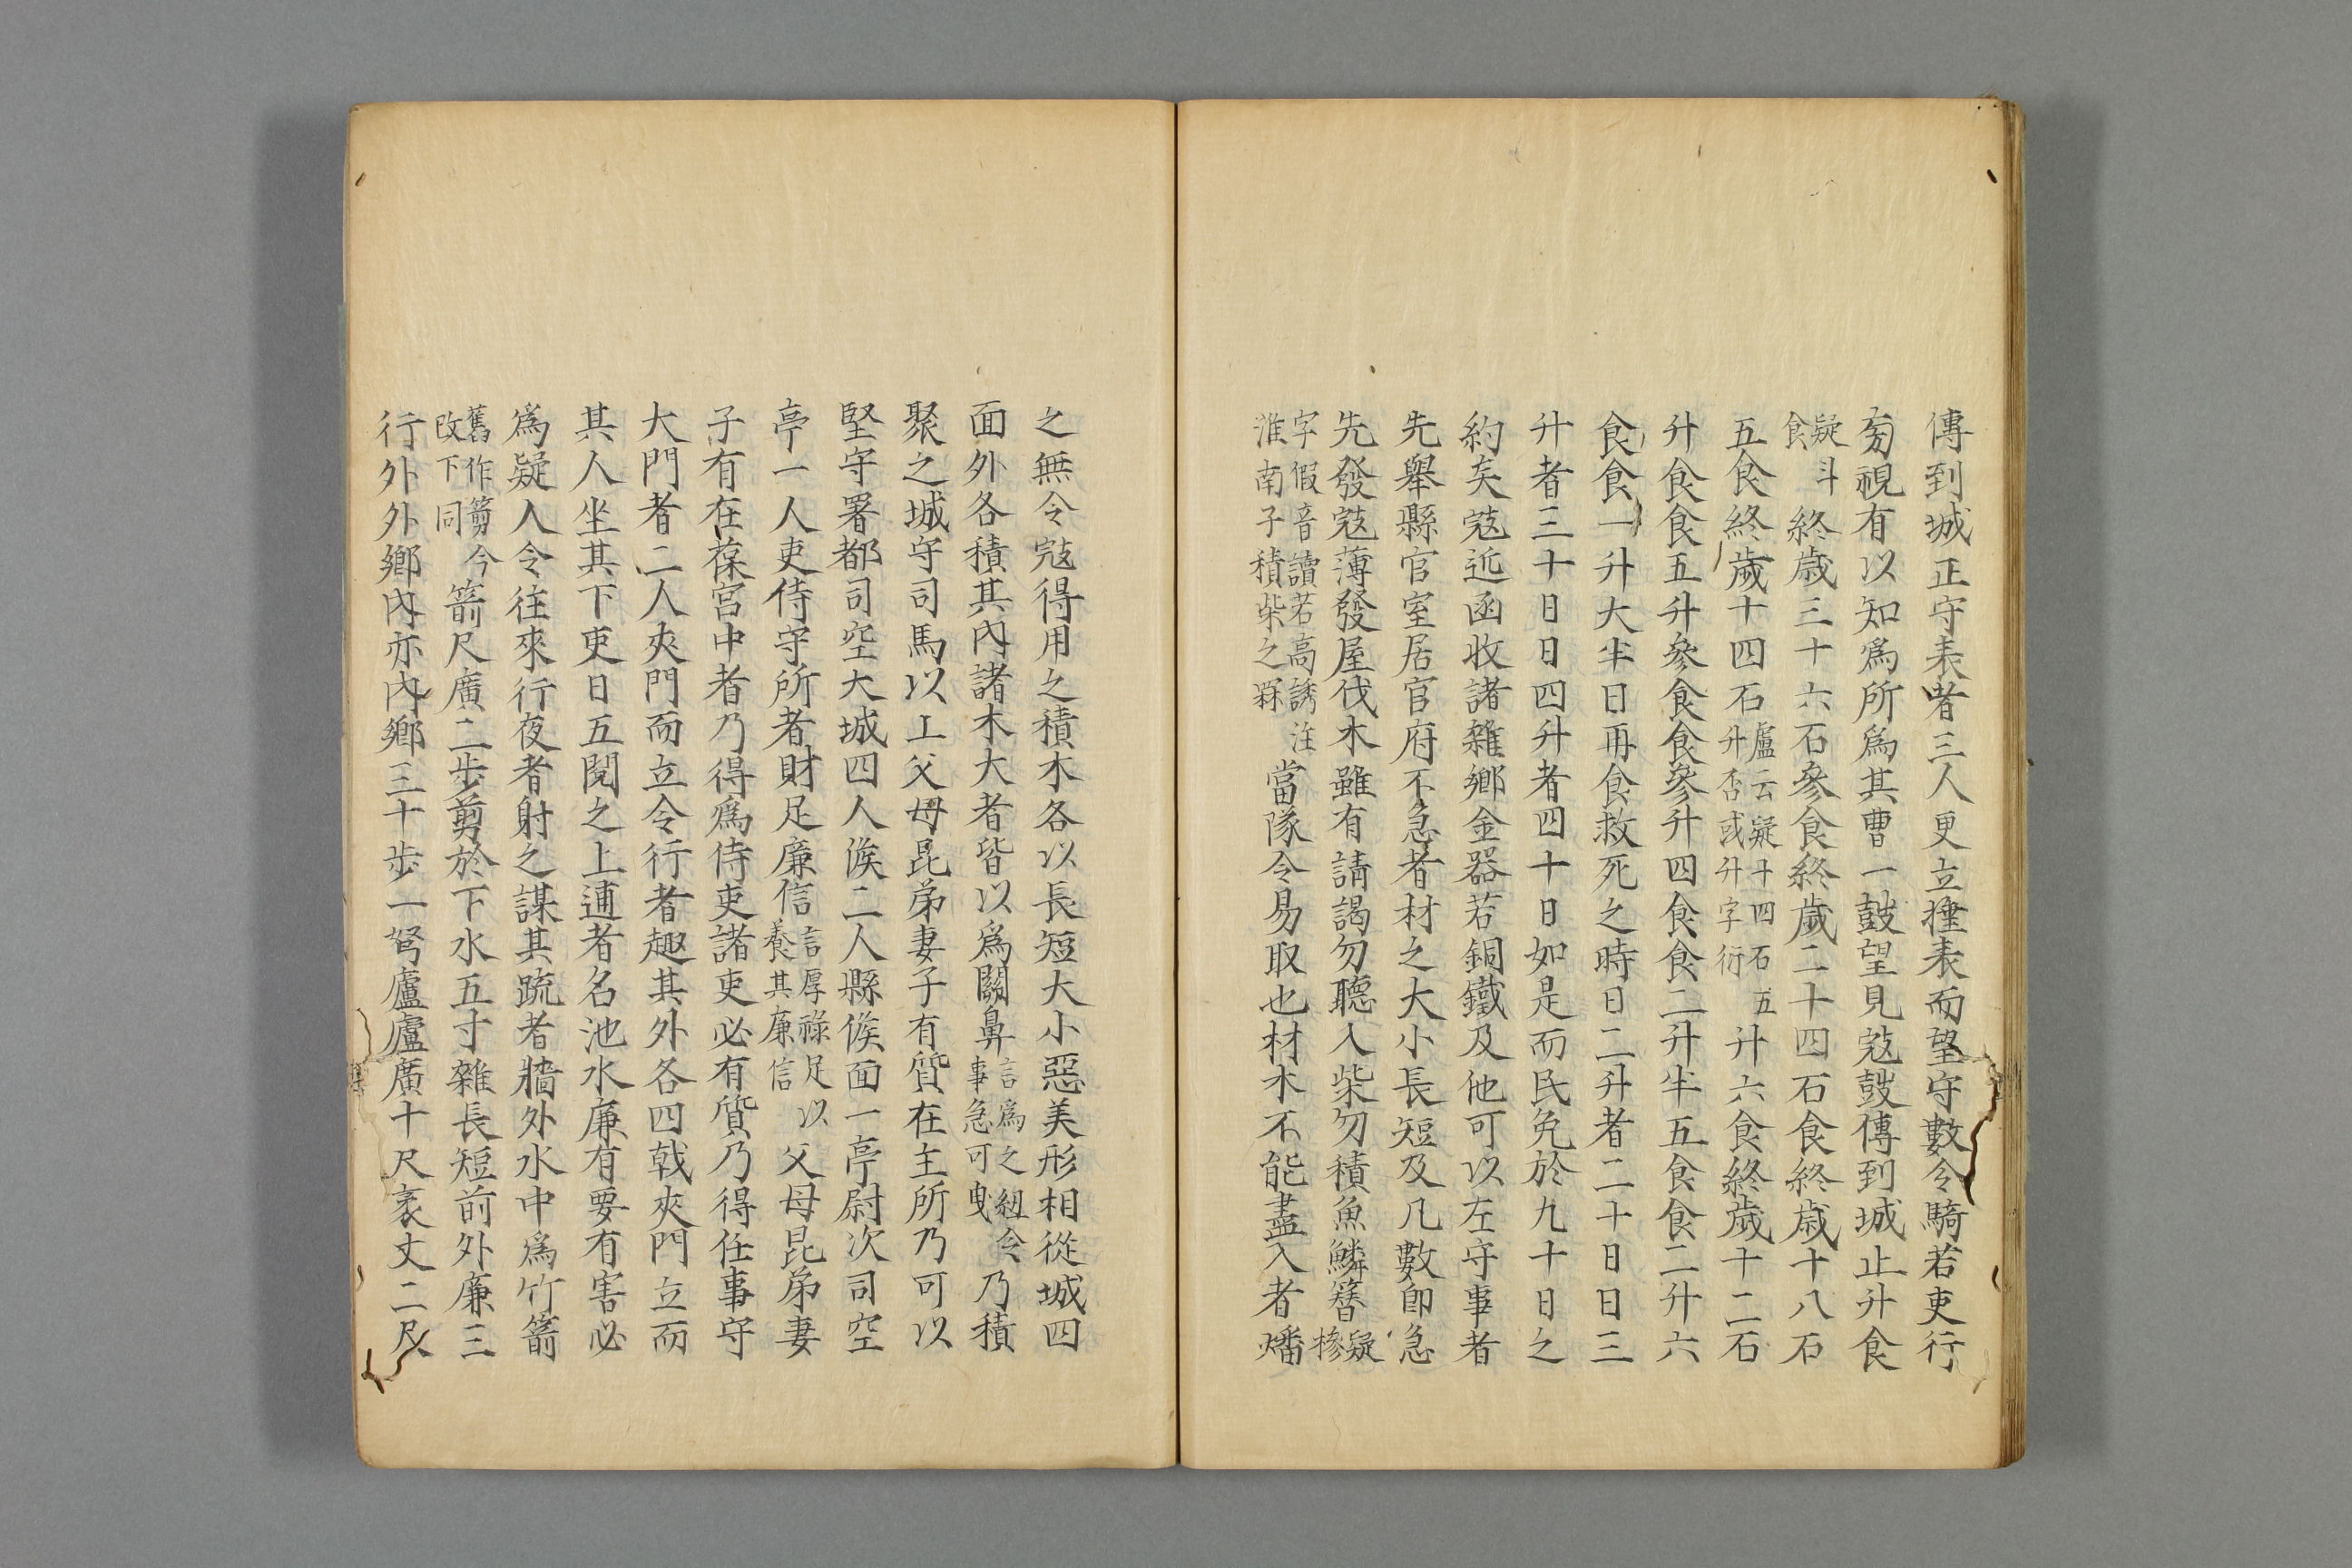 傳到城正守表者三人更立捶表而望守數令騎若吏行
旁視有以知爲所爲其曹一鼓望見寇鼓傳到城止升食
疑斗食終歲三十六石參食終歲二十四石食終歲十八石
五食終歲十四石盧云疑十四石五升否或升字衍升六食終歲十二石
升食食五升參食食參升四食食二升半五食食二升六
食食一升大半日再食救死之時日二升者二十日日三
升者三十日日四升者四十日如是而民免於九十日之
約矣寇近函收諸雜鄉金器若銅鐵及他可以左守事者
先舉縣官室居官府不急者材之大小長短及凡數卽急
先發寇薄發屋伐木雖有請謁勿聽入柴勿積魚鱗簪疑槮
字假音讀若高誘注淮南子積柴之罧當隊令易取也材木不能盡入者燔
之無令寇得用之積木各以長短大小惡美形相從城四
面外各積其內諸木大者皆以爲關鼻言爲之紐令事急可曳乃積
聚之城守司馬以上父母昆弟妻子有質在主所乃可以
堅守署都司空大城四人候二人縣候面一亭尉次司空
亭一人吏侍守所者財足廉信言厚祿足以養其廉信父母昆弟妻
子有在葆宮中者乃得爲侍吏諸吏必有質乃得任事守
大門者二人夾門而立令行者趣其外各四戟夾門立而
其人坐其下吏日五閱之上逋者名池水廉有要有害必
爲疑人令往來行夜者射之謀其疏者牆外水中爲竹箭
舊作箭今改下同箭尺廣二步剪於下水五寸雜長短前外廉三
行外外鄉內亦內鄉三十步一弩廬廬廣十尺袤丈二尺